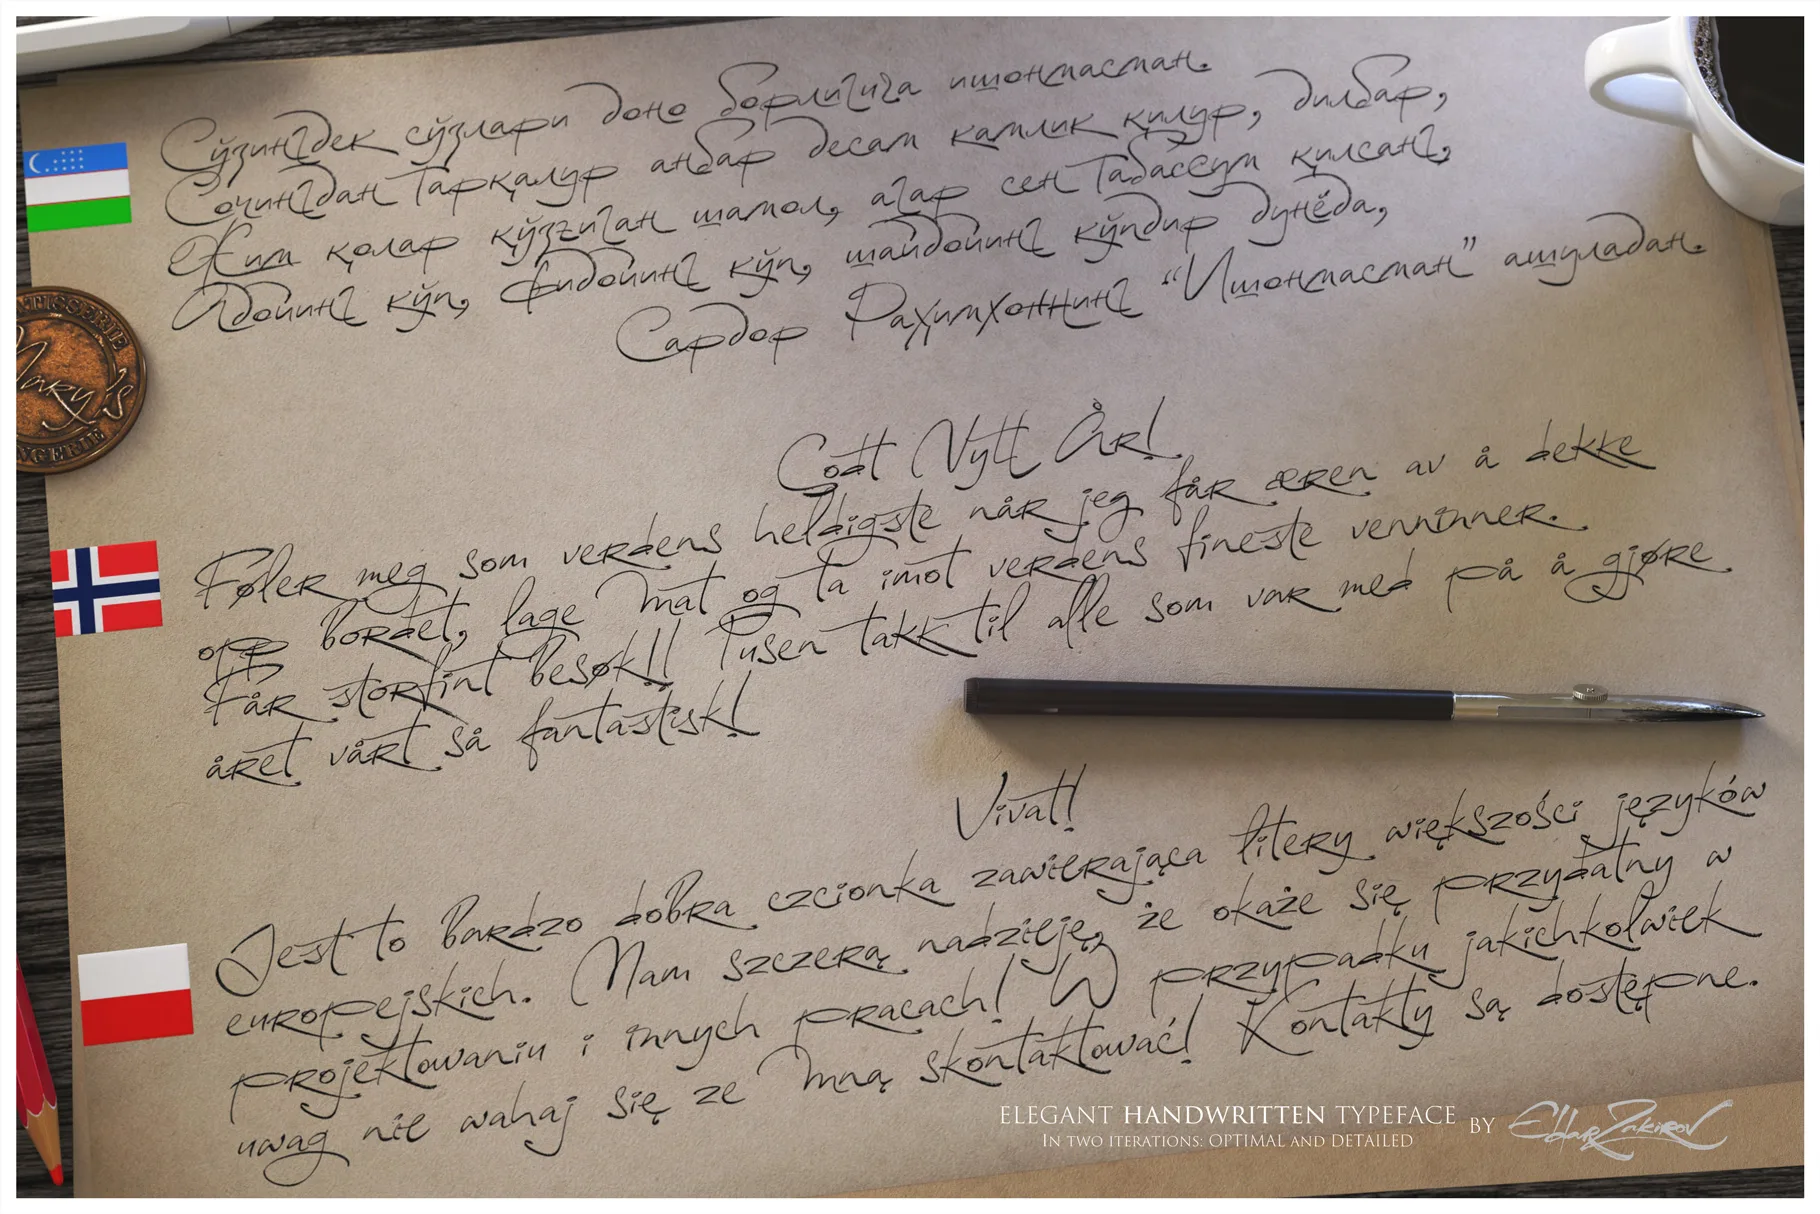 Сўзингдек сўзлари доно борлигига ишонмасман.
Сочингдан таркалур анбар десам камлик қилур, дилбар,
Жим қолар қўзғиган шамол, агар сен табассум қилсанг,
Адойинг кўп, фидойинг кўп, шайдойинг кўпдир дунёда,
Сардор Раҳимхоннинг “Ишонмасман” ашуладан.
Godt Nytt År!
Føler meg som verdens heldigste når jeg får æren av å dekke
opp bordet, lage mat og ta imot verdens fineste venninner.
Får storfint besøk!! Tusen takk til alle som var med på å gjøre
året vårt så fantastisk!
Vivat!
Jest to bardzo dobra czcionka zawierająca litery większości języków
europejskich. Mam szczerą nadzieję, że okaże się przydatny w
projektowaniu i innych pracach! W przypadku jakichkolwiek
uwag nie wahaj się ze mną skontaktować! Kontakty są dostępne.
ELEGANT HANDWRITTEN TYPEFACE BY Eldar Zakirov
IN TWO ITERATIONS: OPTIMAL AND DETAILED